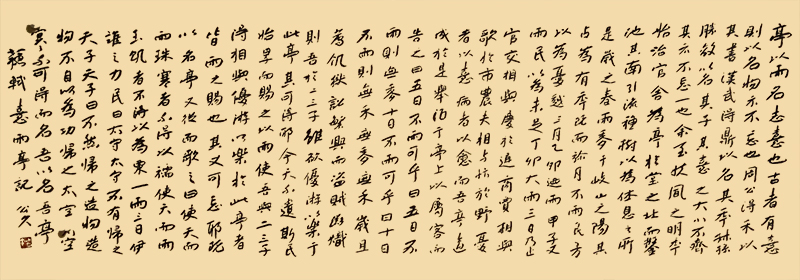 亭以雨名志喜也古者有喜
則以名物示不忘也周公得禾以
其書漢武得鼎以名其年叔孫
勝敌以名其子其喜之大小不齊
其示不忘一也余至扶風之明年
始治官舍為亭於堂之北而鑿
池其南引流種樹以為休息之所
是歲之春雨麥于岐山之陽其
占為有年既而彌月不雨民方
以為憂越三月乙卯迺雨甲子又
雨民以為未足丁卯大雨三日乃止
官吏相與慶於庭商賈相與
歌於市農夫相与忭於野憂
者以喜病者以愈而吾亭適
成於是舉酒于亭上以屬客而
告之曰五日不雨可乎曰五日不
雨則無麥十日不雨可乎曰十日
不雨則無禾無麥無禾歲且
荐飢獄訟繁興而盜賊滋熾
則吾於二三子雖欲優游以樂于
此亭其可得邪今天不遺斯民
始旱而賜之以雨使吾與二三子
得相與優游以樂於此亭者
皆雨之賜也其又可忘耶既
以名亭又從而歌之曰使天而
雨珠寒者不得以為襦使天而雨
玉飢者不得以為粟一雨三日伊
誰之力民曰太守太守不有歸之
天子天子曰不然歸之造物造
物不自以為功歸之太空太空
冥冥不可得而名吾以名吾亭
蘇軾 喜雨亭記 公久